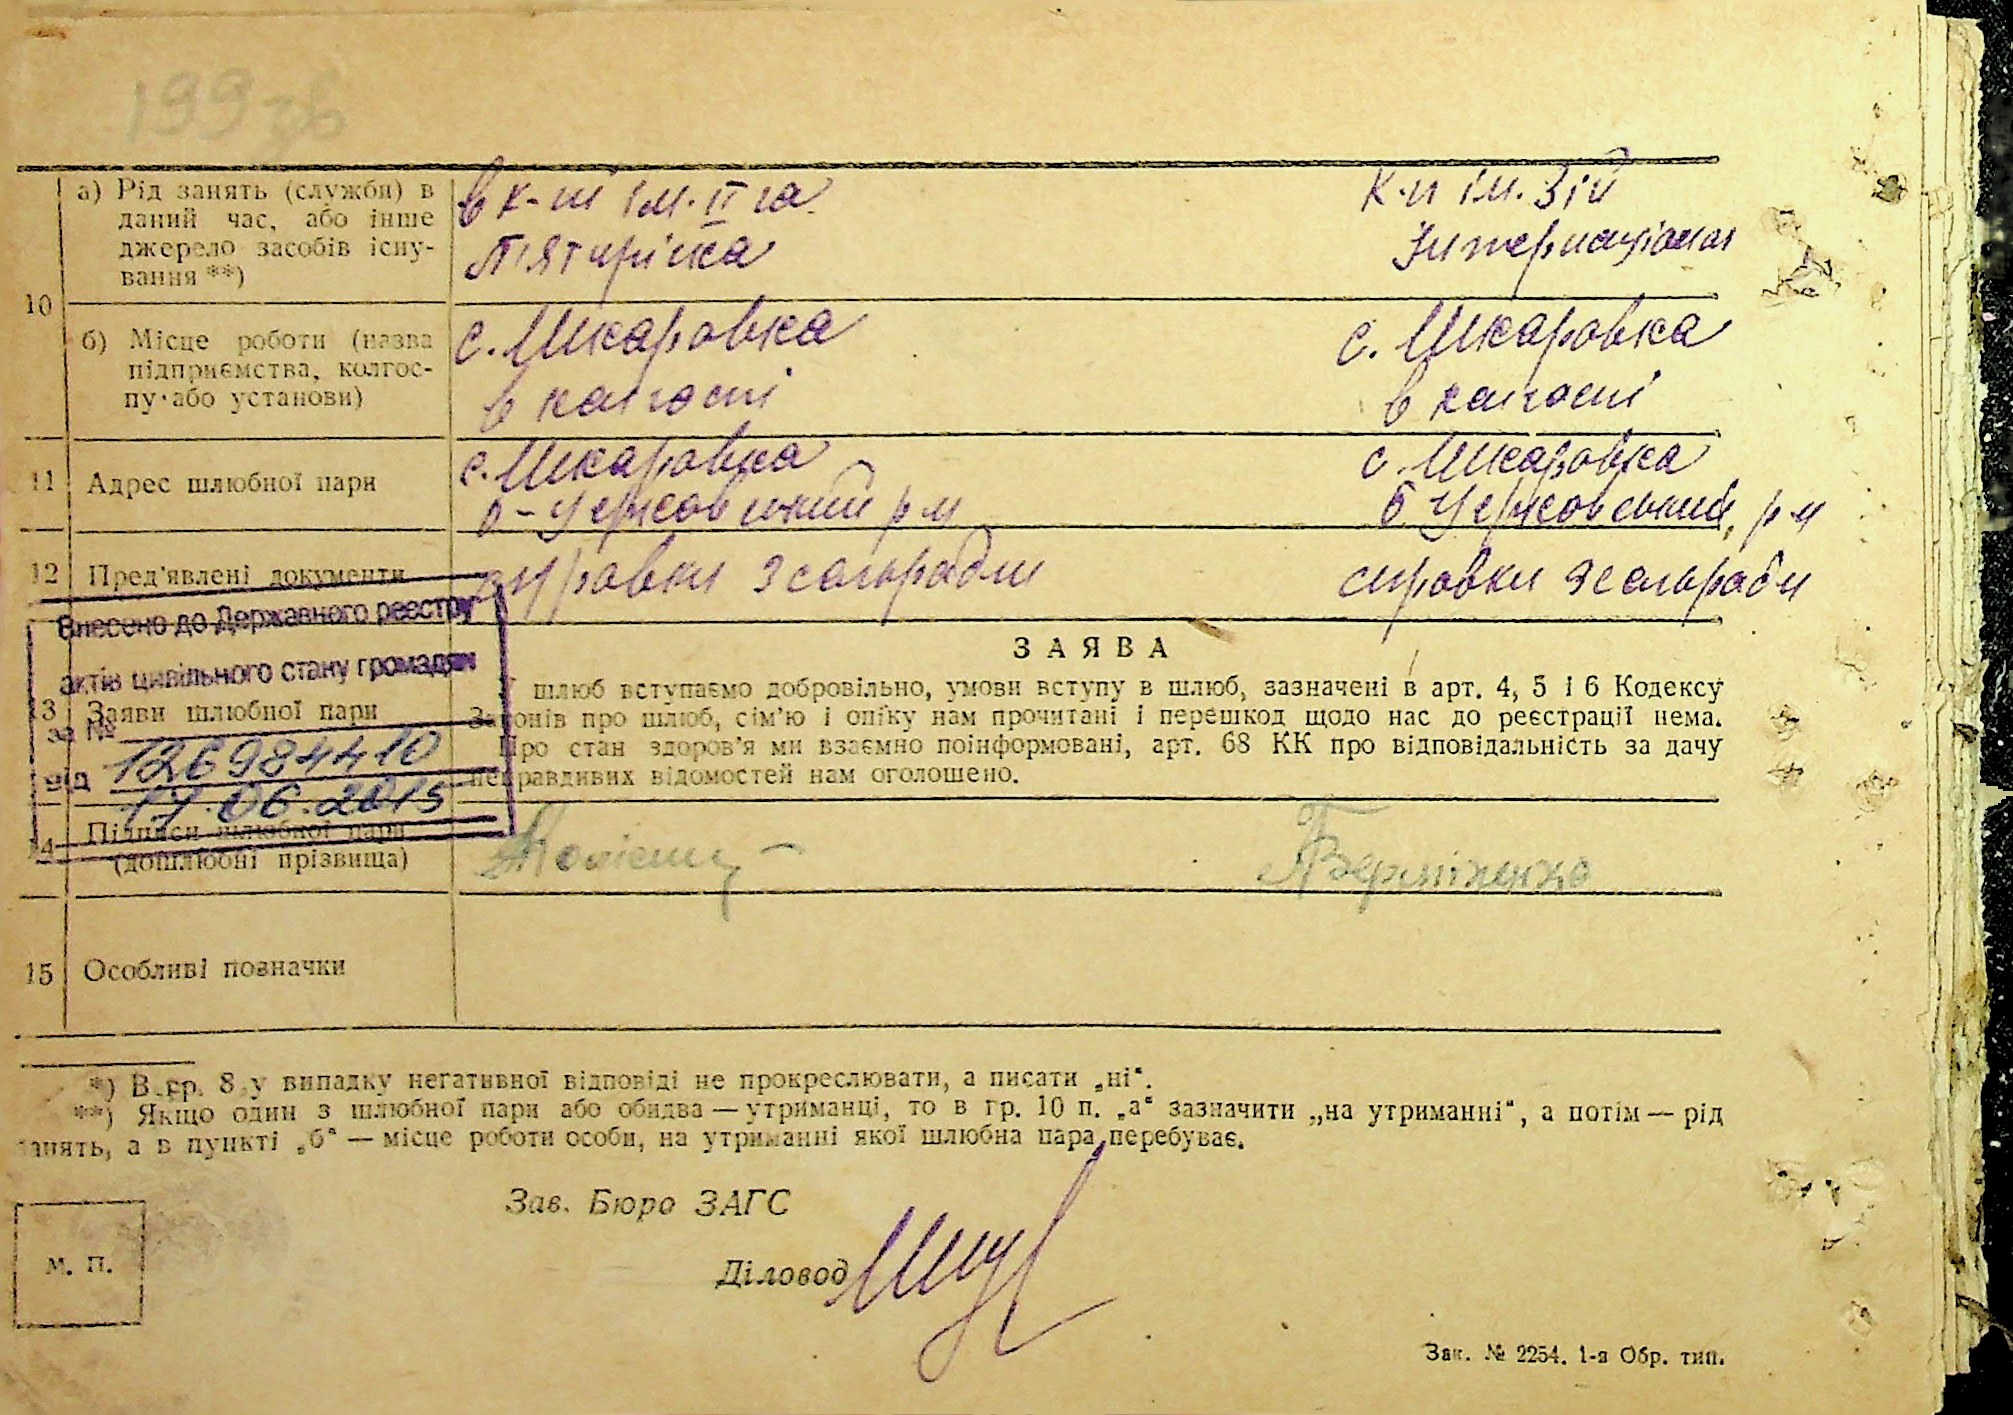 199 зв
а) Рід занять (служби) в
даний час, або інше
джерело засобів існу-
вання **)
в к-ні ім. II га
П'ятирічка
к-п ім. 3ій
Інтернаціонал
10
б) Місце роботи (назва
підприємства, колгос-
пу або установи)
с. Шкаровка
в колгоспі
с. Шкаровка
в колгоспі
11
Адрес шлюбної пари
с. Шкаровка
с. Шкаровка
12
Пред'явлені документи
справки з сельради
справки з сельради
Внесено до Державного реєстру
актів цивільного стану громадян
за № 126984410
від 17.06.2015
13
Заяви шлюбної пари
ЗАЯВА
У шлюб вступаємо добровільно, умови вступу в шлюб, зазначені в арт. 4, 5 і 6 Кодексу
Законів про шлюб, сім'ю і опіку нам прочитані і перешкод щодо нас до реєстрації нема.
Про стан здоров'я ми взаємно поінформовані, арт. 68 КК про відповідальність за дачу
неправдивих відомостей нам оголошено.
14
Підписи шлюбної пари
(дошлюбні прізвища)
15
Особливі позначки
*) В гр. 8 у випадку негативної відповіді не прокреслювати, а писати „ні“.
**) Якщо один з шлюбної пари або обидва — утриманці, то в гр. 10 п. „а“ зазначити „на утриманні“, а потім — рід
занять, а в пункті „б“ — місце роботи особи, на утриманні якої шлюбна пара перебуває.
Зав. Бюро ЗАГС
М. П.
Діловод
Зак. № 2254. 1-а Обр. тип.